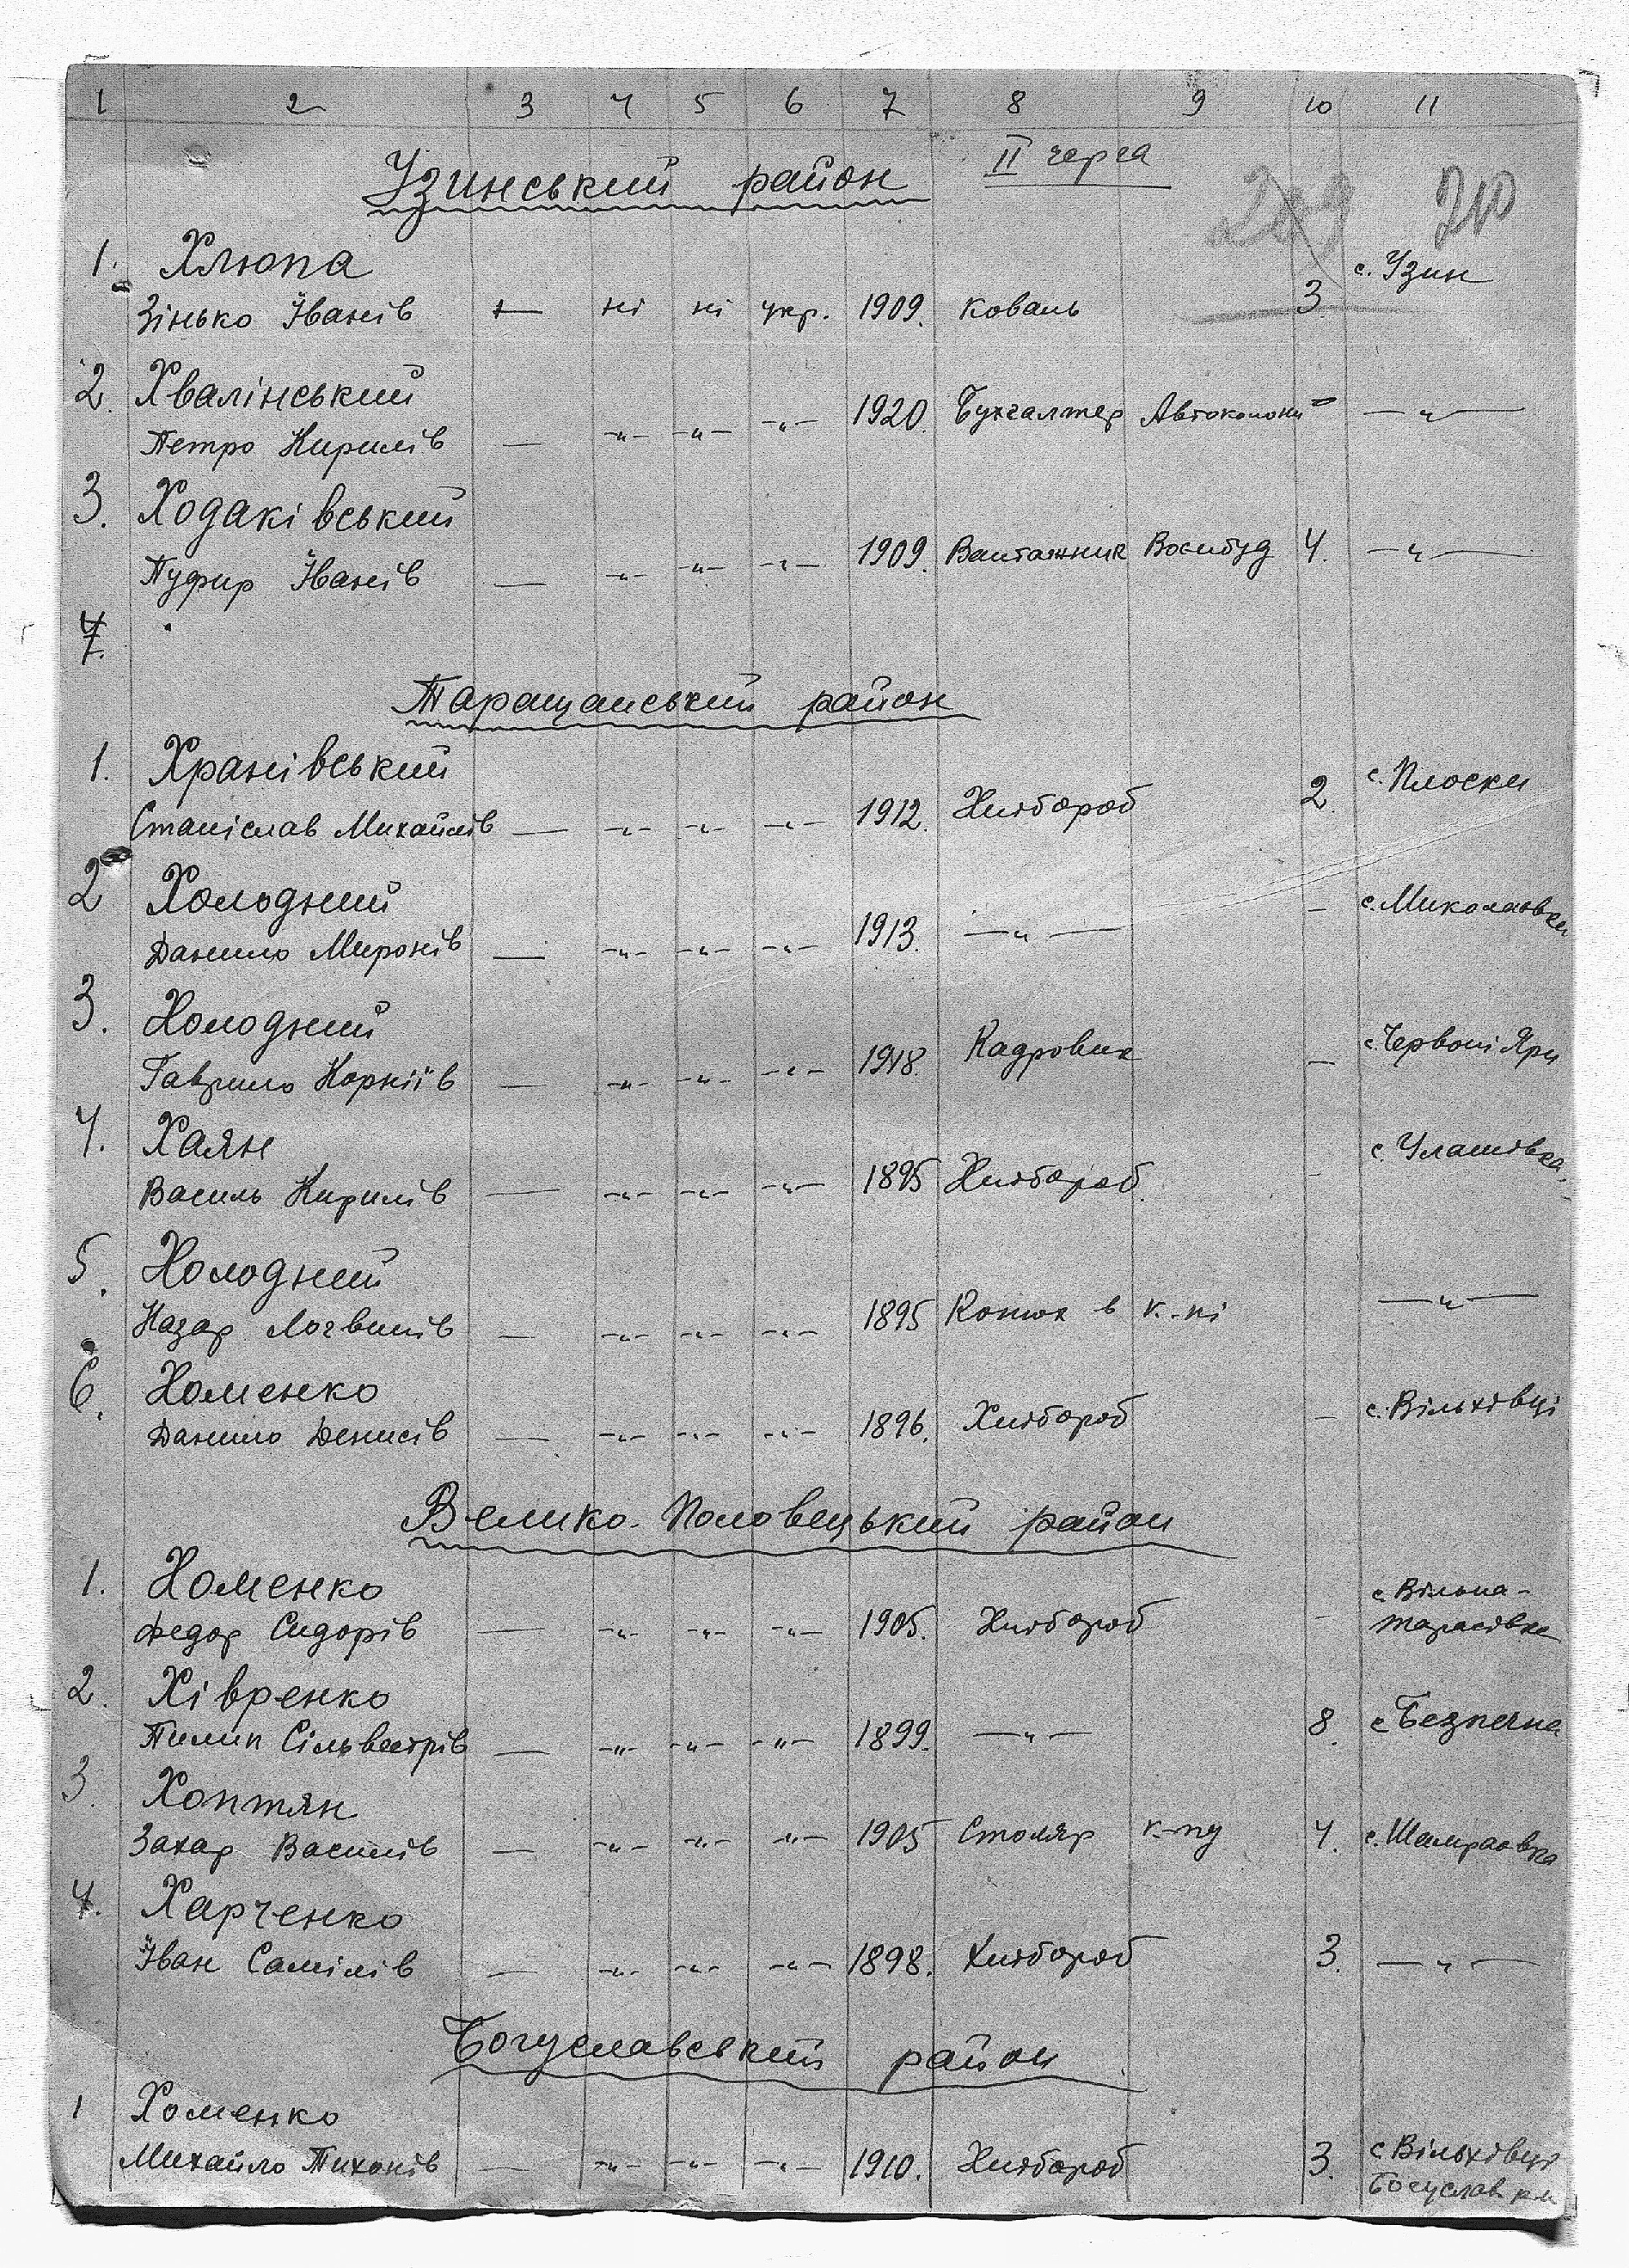 1 2 3 4 5 6 7 8 9 10 11
II черга
Узинський район
209 210
1. Хлюпа с. Узин
Зінько Іванів — ні ні укр. 1909. коваль 3.
2. Хвалінський
Петро Кирилів — -"- -"- -"- 1920. Бухгалтер Автоколони — —"—
3. Ходаківський
Пуфир Іванів — -"- -"- -"- 1909. Вантажник Воєнбуд 4. —"—
4.
Таращанський район
1. Хранівський с. Плоски
Станіслав Михайлів — -"- -"- -"- 1912. Хлібороб 2.
2 Холодний с. Миколаівка
Данило Миронів — -"- -"- -"- 1913. —"— –
3. Холодний с. Червоні Яри
Гаврило Корніїв — -"- -"- -"- 1918. Кадровик –
4. Хаян с. Улашівка
Василь Кирилів — -"- -"- -"- 1895 Хлібороб. –
5. Холодний
Назар Логвинів — -"- -"- -"- 1895 Конюх в к-пі —"—
6. Хоменко с. Вільхівці
Данило Денисів — -"- -"- -"- 1896. Хлібороб –
Велико-Половецький район
1. Хоменко с. Вільна-
Федор Сидорів — -"- -"- -"- 1905. Хлібороб – Тарасівка
2. Хівренко
Пилип Сільвестрів — -"- -"- -"- 1899. —"— 8. с. Безпечна
3. Хоптян
Захар Василів — -"- -"- -"- 1905 Столяр к-пу 4. с. Шамраівка
4. Харченко
Іван Самілів — -"- -"- -"- 1898. Хлібороб 3. —"—
Богуславський район
1 Хоменко
Михайло Тихонів — -"- -"- -"- 1910. Хлібороб 3. с. Вільхівці
Богуслав. р-н